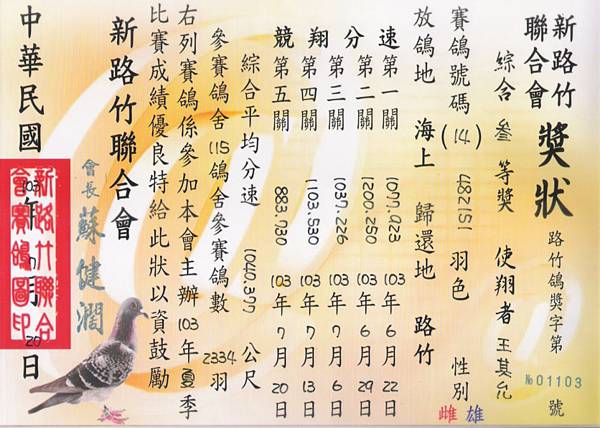 新路竹聯合會
獎狀
路竹鴿獎字第 №01103 號
綜合 叁 等獎 使翔者 王其允
賽鴿號碼(14) 482151 羽色 性別 雌雄
放鴿地 海上 歸還地 路竹
競翔分速
第一關 1077.923 103年6月22日
第二關 1200.250 103年6月29日
第三關 1037.226 103年7月6日
第四關 1103.530 103年7月13日
第五關 883.730 103年7月20日
綜合平均分速 1040.377 公尺
參賽鴿舍 115 鴿舍參賽鴿數 2334 羽
右列賽鴿係參加本會主辦103年夏季
比賽成績優良特給此狀以資鼓勵
新路竹聯合會
會長 蘇健潤
中華民國 103年 7月 20日
新路竹聯合會賽鴿圖印